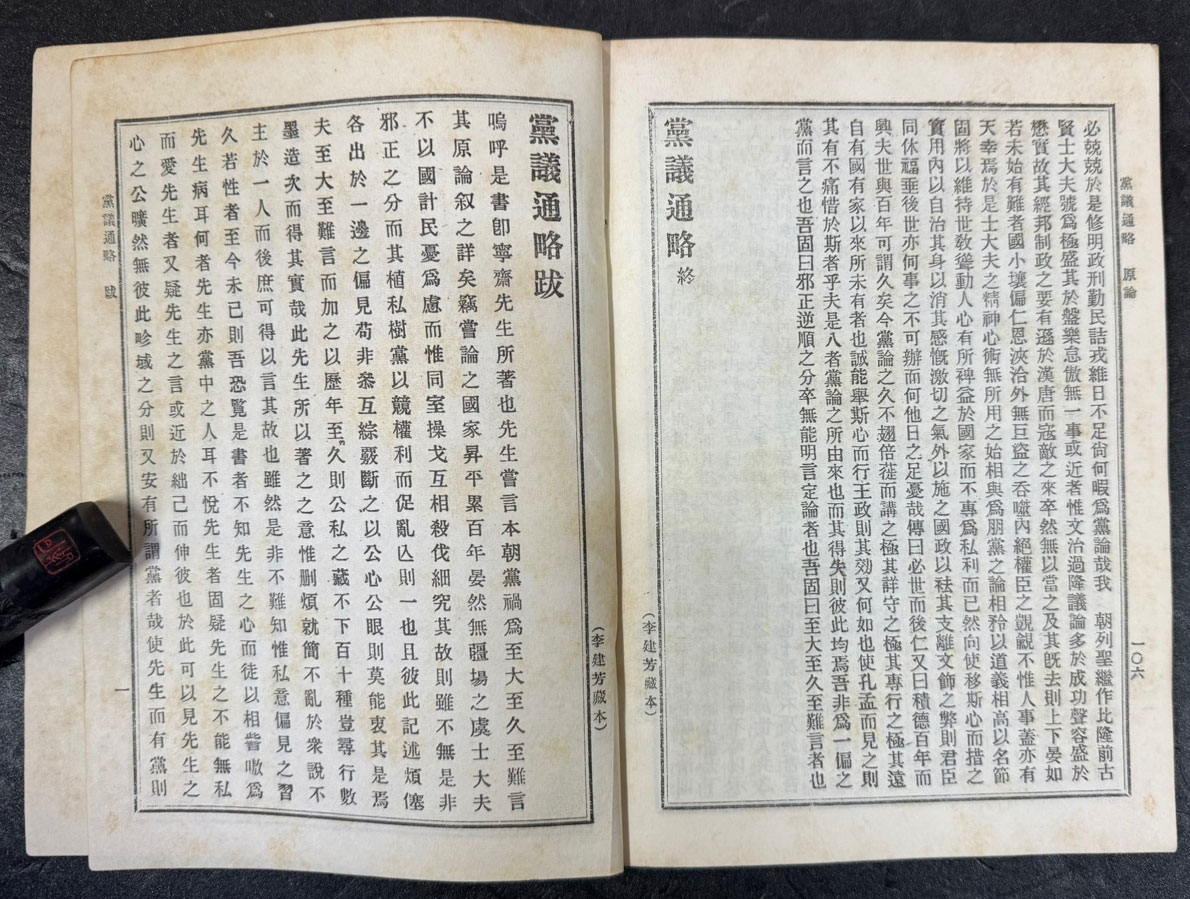 黨議通略　原論
一〇六
必兢兢於是修明政刑勤民詰戎維日不足尙何暇爲黨論哉我　朝列聖繼作比隆前古
賢士大夫號爲極盛其於盤樂怠傲無一事或近者惟文治過隆議論多於成功聲容盛於
懋實故其經邦制政之要有遜於漢唐而寇敵之來卒然無以當之及其旣去則上下晏如
若未始有難者國小壤偏仁恩浹洽外無巨盜之呑噬內絕權臣之覬覦不惟人事蓋亦有
天幸焉於是士大夫之精神心術無所用之始相與爲朋黨之論相矜以道義相高以名節
固將以維持世敎聳動人心有所裨益於國家而不專爲私利而已然向使移斯心而措之
實用內以自治其身以消其感慨激切之氣外以施之國政以袪其支離文飾之弊則君臣
同休福垂後世亦何事之不可辦而何他日之足憂哉傳曰必世而後仁又曰積德百年而
興夫世與百年可謂久矣今黨論之久不翅倍蓰而講之極其詳守之極其專行之極其遠
自有國有家以來所未有者也誠能舉斯心而行王政則其効又何如也使孔孟而見之則
其有不痛惜於斯者乎夫是八者黨論之所由來也而其得失則彼此均焉吾非爲一偏之
黨而言之也吾固曰邪正逆順之分卒無能明言定論者也吾固曰至大至久至難言者也
黨議通略終
（李建芳藏本）
黨議通略跋
嗚呼是書卽寧齋先生所著也先生嘗言本朝黨禍爲至大至久至難言
其原論叙之詳矣竊嘗論之國家昇平累百年晏然無疆場之虞士大夫
不以國計民憂爲慮而惟同室操戈互相殺伐細究其故則雖不無是非
邪正之分而其植私樹黨以競權利而促亂亾則一也且彼此記述煩僿
各出於一邊之偏見苟非叅互綜覈斷之以公心公眼則莫能衷其是焉
夫至大至難言而加之以歷年至久則公私之藏不下百十種豈尋行數
墨造次而得其實哉此先生所以著之之意惟删煩就簡不亂於衆說不
主於一人而後庶可得以言其故也雖然是非不難知惟私意偏見之習
久若性者至今未已則吾恐覽是書者不知先生之心而徒以相訾嗷爲
先生病耳何者先生亦黨中之人耳不悅先生者固疑先生之不能無私
而愛先生者又疑先生之言或近於絀己而伸彼也於此可以見先生之
心之公曠然無彼此畛域之分則又安有所謂黨者哉使先生而有黨則
（李建芳藏本）
黨議通略　跋
一